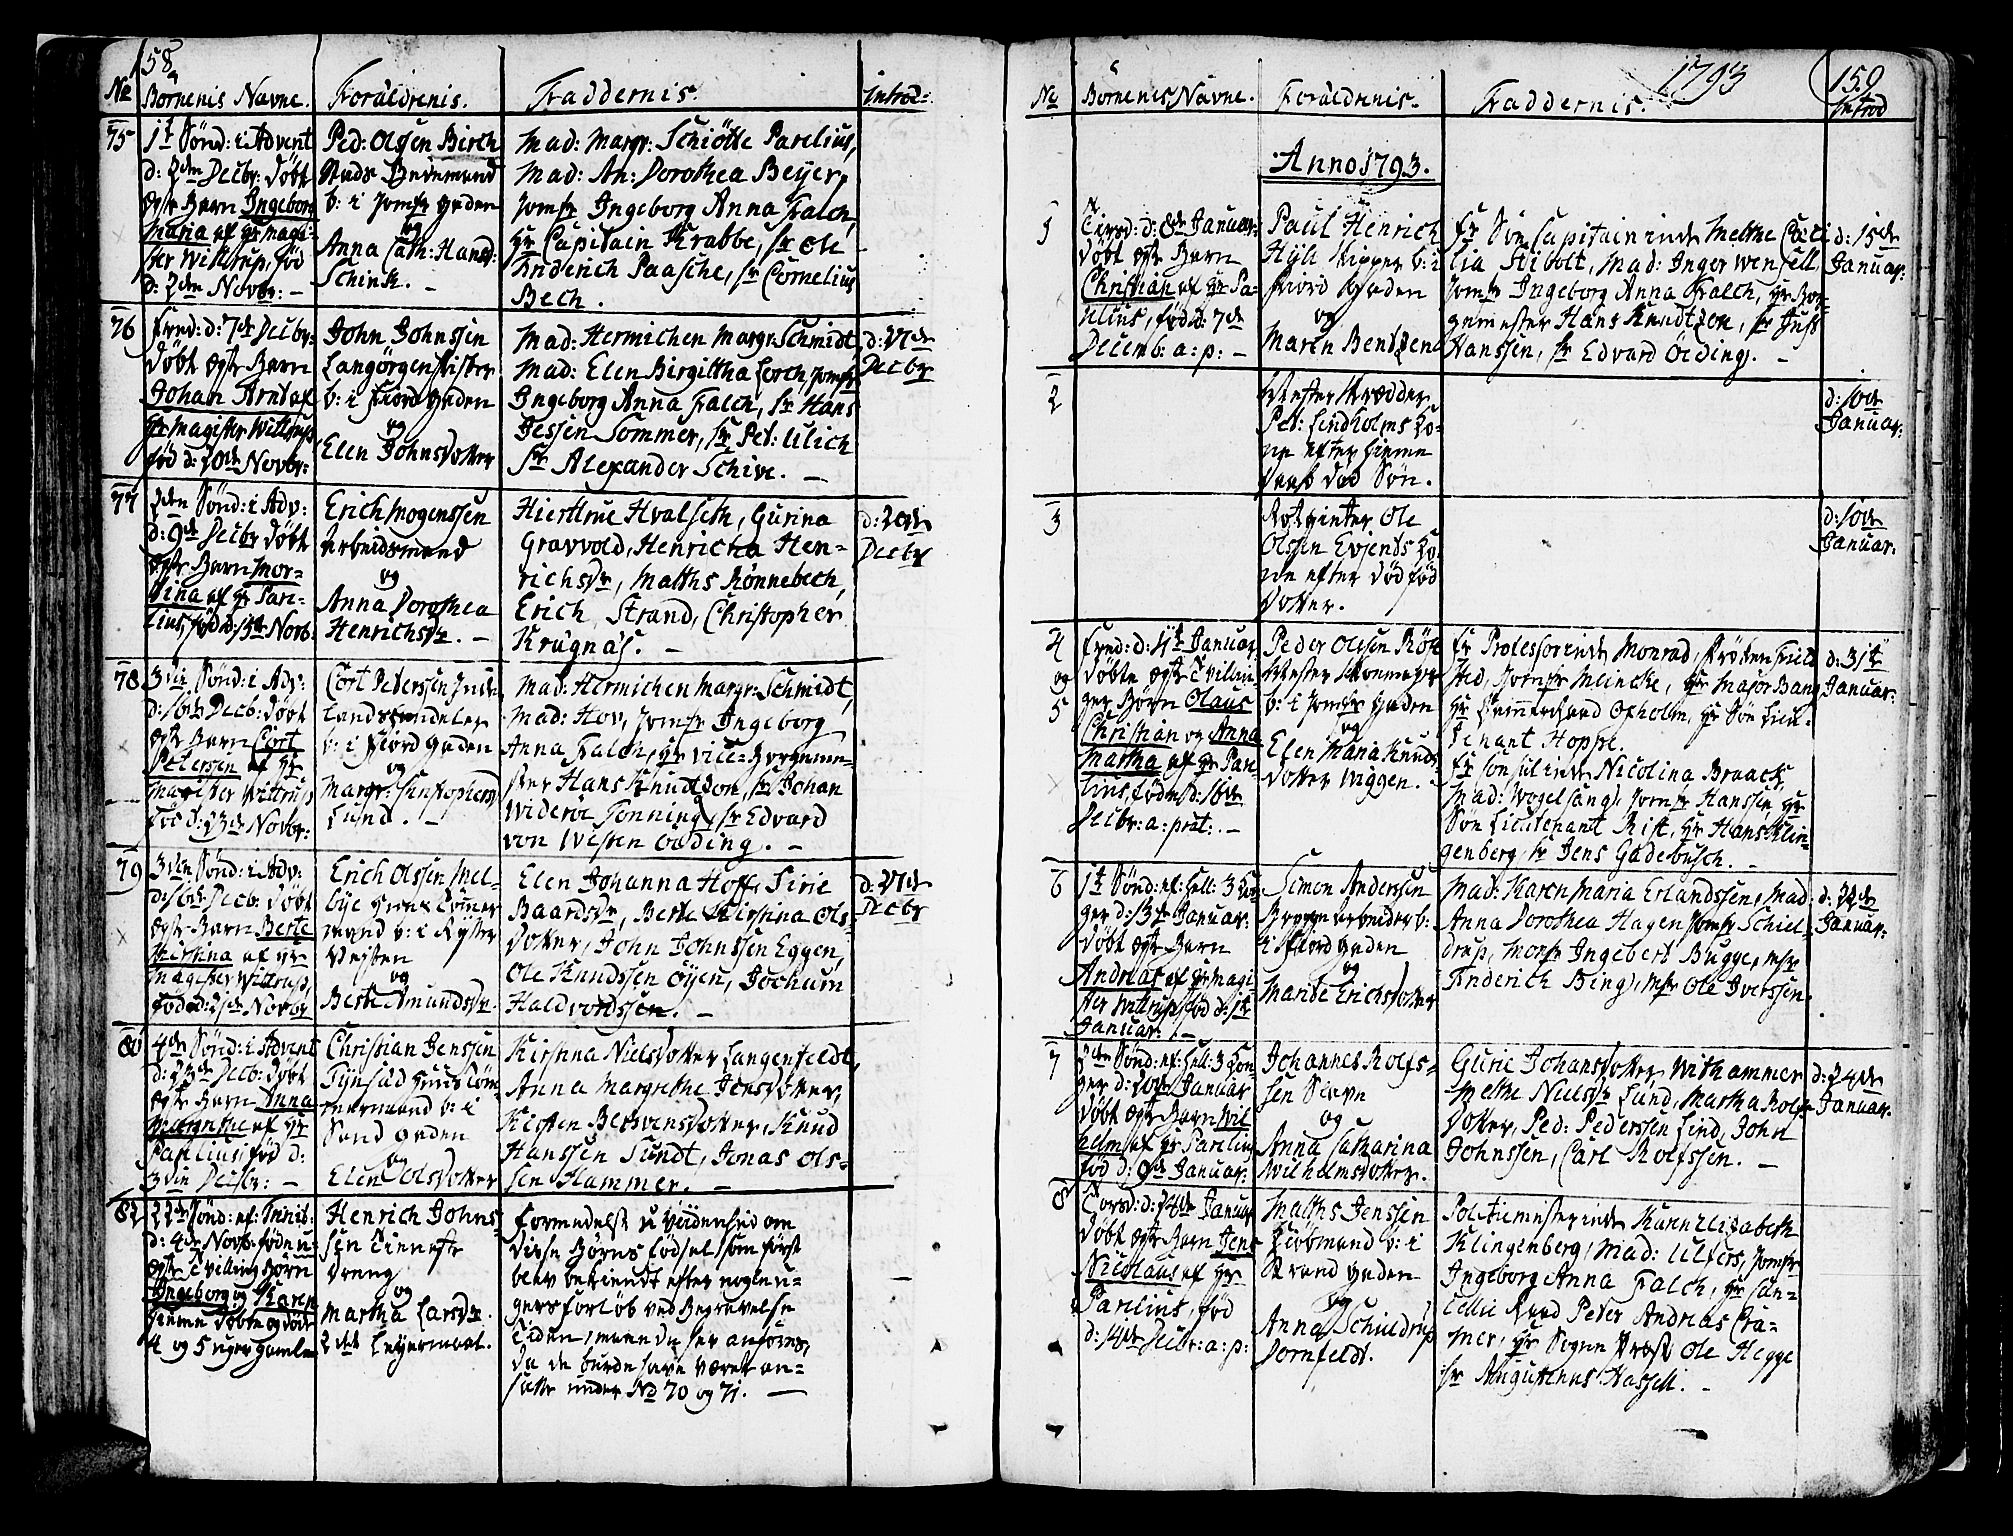 158
No Børnenis Navne. Forældrenis. Faddernis. Introd:
75
1t Sønd: i Advent
d: 2den Decbr: døbt
ægte Barn Ingeborg
Maria af Hr Magi-
ster Wittrup, fød
d: 2den Novbr: –
Ped: Olssen Birch
Stads Bedemand
b: i Jomfr Gaden
og
Anna Cath: Hansd:
Schink. –
Mad: Margr: Schiøtte Parelius,
Mad: An: Dorothea Beyer,
Jomfr Ingeborg Anna Falch,
Hr Capitain Krabbe, Sr Ole
Friderich Paasche, Sr Cornelius
Bech.
76
Fred: d: 7de Decbr:
døbt ægte Barn
Johan Arnt af
Hr Magister Wittrup
fød d: 20de Novbr:
John Johnssen
Langørgen Fisker
b: i Fiord Gaden
og
Elen Johnsdotter
Mad: Hermichen Margr: Schmidt,
Mad: Elen Birgittha Lorch, Jomfr
Ingeborg Anna Falch, Sr Hans
Jessen Sommer, Sr Pet: Ulich
Sr Alexander Schive. –
d: 27de
Decbr
77
2den Sønd: i Adv:
d: 9de Decbr døbt
ægte Barn Mor-
tina af Hr Pare-
lius, fød d: 13de Novb:
Erich Mogenssen
Arbeidsmand
og
Anna Dorothea
Henrichsdr. –
Hierttrue Hvalseth, Gurina
Gravvold, Henricha Hen-
richsdr, Matths Rønnebech,
Erich Strand, Christopher
Krugnas. –
d: 20de
Decbr
78
3die Sønd: i Adv:
d: 16de Decb: døbt
ægte Barn Cort
Peterssen af Hr
Magister Wittrup
fød d: 23de Novbr:
Cort Peterssen Inde-
lands
b: i Fiord Gaden
og
Margr: Christophersd
Lund. –
Mad: Hermichen Margr: Schmidt,
Mad: Hov, Jomfr Ingeborg
Anna Falch, Hr Vice-Borgeme-
ster Hans Knudtzon, Sr Johan
Widerøe Tonning, Sr Edvard
von Westen Øeding. –
79
3den Sønd: i Adv:
d: 16de Decb: døbt
ægte Barn Berte
Kirstina af Hr
Magister Wittrup,
fød d: 21de Novbr
Erich Olssen Mel-
bye Huus Tømmer
mand b: i Kyster
Veiten
og
Berte Amundsdr.
Elen Johanna Hoff, Sirie
Baardsdr, Berte Kirstina Ols-
dotter, John Johnssen Eggen,
Ole Knudssen Øyen, Jochum
Haldvordssen. –
d: 27de
Decbr
80
4de Sønd: i Advent
d: 23de Decb: døbt
ægte Barn Anna
Margrethe af Hr
Parelius, fød d:
3die Decbr: –
Christian Jenssen
Tynsæd Huus Tøm-
mermand b: i
Sand Gaden
og
Elen Olsdotter
Kirstina Nielsdotter Langenfeldt,
Anna Margrethe Jensdotter,
Kirsten Berthensdotter, Knud
Hanssen Sundt, Jonas Ols-
sen Hammer. –
82
22de Sønd: ef: Trinit:
d: 4de Novb: føde u-
ægte Tvilling Børn
Ingeborg og Karen
hieme døbte og døde
4 og 5 uger gamle
Henrich Johns-
sen Tieneste
dreng
og
Martha Larsdr.
2det Leyermaal.
Formedelst uvidenhed om
disse Børns Fødsel som først
blev bekiendt efter nogle u-
gers forløb ved Begravelse
Tiden, maae de her anføres,
da de burde have været an-
satte under No 70 og 71. –
1793
159
No Børnenes Navne. Forældrenis. Faddernis. Introd
Anno 1793.
1
Tirsd: d: 8de Januar:
døbt ægte Barn
Christian af Hr Pa-
relius, fød d: 7de
Decemb: a: p: –
Paul Henrich
Hÿll Skipper b: i
Fiord Gaden
og
Maren Bentzen
Fr Søe Capitaininde Mette Cæci
lia Stibolt, Mad: Inger Wensell,
Jomfr Ingeborg Anna Falch, Hr Bor-
gemester Hans Knudtzon, Sr Just
Hanssen, Sr Edvard Öeding. –
d: 15de
Januar:
2
Mester Skrædder
Pet: Lindholms Ko-
ne efter hieme
døbt død Søn.
d: 10de
Januar:
3
Olssen Evjends Ko-
ne efter død fød
dotter.
d: 10de
Januar:
4
og
5
Fred: d: 11te Januar:
døbte ægte Tvillin-
ger Børn Olaus
Christian og Anna
Martha af Hr Pare-
lius, føde d: 16de
Decbr: a: præt: –
Peder Olssen Röst
Mester Skomager
b: i Jomfr Gaden
og
Elen Maria Knuds
dotter Wiggen. –
Fr Professorinde Monrad, Frøken Friis
Jomfr Meincke, Hr Major Bang
Hr Cammerraad Oxholm, Hr Søe Lieu-
tenant Hoppe.
Fr Consulinde Nicolina Braack,
Mad: Vogelsang, Jomfr Hanssen, Hr
Søe Lieutenant Rist, Hr Hans Klin-
genberg, Sr Jens Gadebusch. –
d: 31te
Januar:
6
1te Sønd: ef: Hell: 3 Kon-
ger d: 13de Januar:
døbt ægte Barn
Andreas af Hr Magi-
ster Wittrup fød d: 1te
Januar: –
Simon Anderssen
Brygge Arbeider b:
i Fiord Gaden
og
Marite Erichsdotter
Mad: Karen Maria Erlandssen, Mad:
Anna Dorothea Hagen, Jomfr Schiel-
drup, Monsr Ingebert Bugge, Msr
Friderich Bing, Msr Ole Iverssen.
d: 22de
Januar:
7
2den Sønd: ef: Hell: 3 Kon-
ger d: 20de Januar
døbt ægte Barn Wil
helm af Hr Parelius
fød d: 9de Januar:
Johannes Rolfs-
sen Slave
og
Anna Catharina
Wilhelmsdotter.
Gurie Johansdotter Withammer
Mette Nielsdr Lund, Martha Rolfs
dotter, Ped: Pederssen Lind, John
Johnssen, Carl Rolfssen. –
d: 24de
Januar.
8
Torsd: d: 24de Januar
døbt ægte Barn Jens
Nicolaus af Hr
Parelius, fød
d: 14de Decbr: a: p:
Matths Jenssen
Kiøbmand b: i
Strand Gaden
og
Anna Schieldrup
Dornfeldt.
Politiemesterinde Karen Elisabeth
Klingenberg, Mad: Ulfers, Jomfr
Ingeborg Anna Falch, Hr Can-
cellie Raad Peter Andreas Cra-
mer, Hr Sogne Præst Ole Hegge
Sr Augustinus Hassell. –